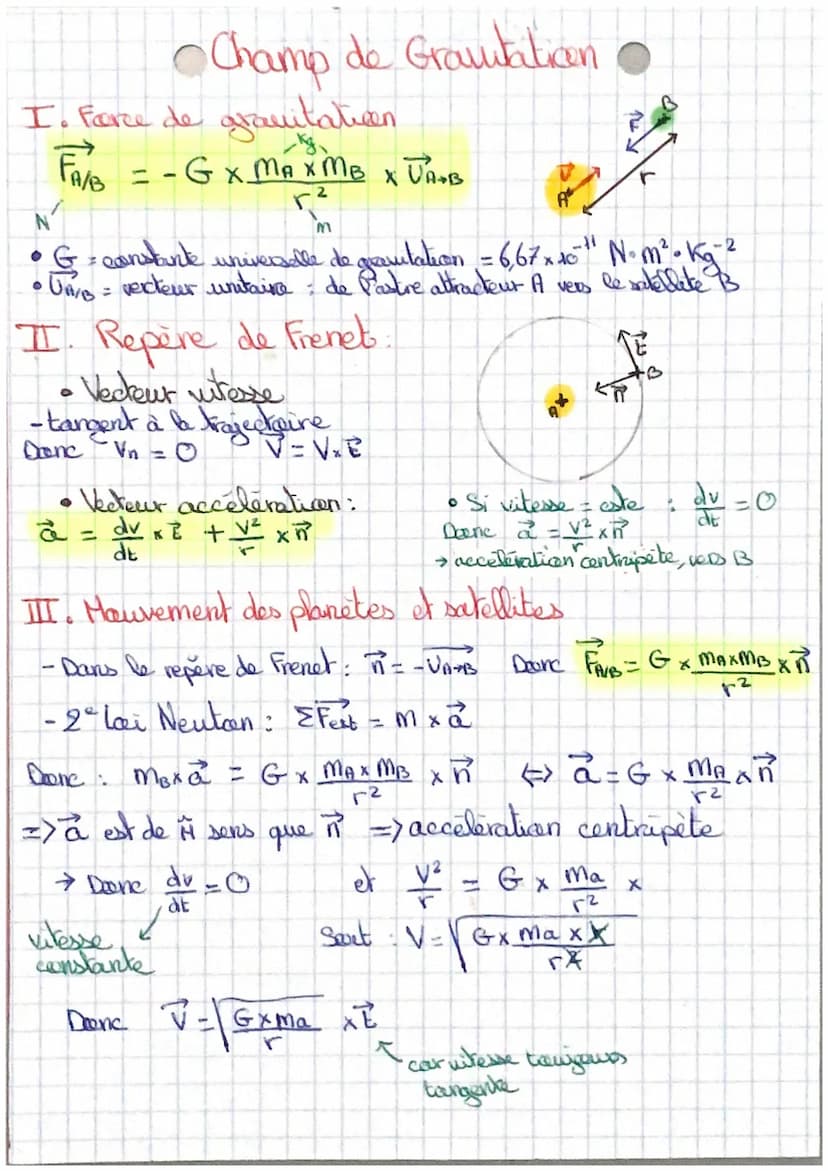 Champ de Gravitation
I. Force de gravitation
F⃗A/B = - G x mA x mB / r² x U⃗A→B
Kg
N
m
B
F⃗
r
U⃗
A
• G = constante universelle de gravitation = 6,67 x 10⁻¹¹ N • m² • Kg⁻²
• U⃗A/B = vecteur unitaire : de l'astre attracteur A vers le satellite B
II. Repère de Frenet :
• Vecteur vitesse
- tangent à la trajectoire
Donc - Vn = 0 V⃗ = V x t⃗
t⃗
B
n⃗
A
• Vecteur accélération :
a⃗ = dv/dt x t⃗ + v²/r x n⃗
• Si vitesse = cste : dv/dt = 0
Donc a⃗ = v²/r x n⃗
→ accélération centripète, vers B
III. Mouvement des planètes et satellites
- Dans le repère de Frenet : n⃗ = - U⃗A→B Donc F⃗A/B = G x mA x mB / r² x n⃗
- 2e Loi Newton : ΣF⃗ext = m x a⃗
Donc : mB x a⃗ = G x mA x mB / r² x n⃗ <=> a⃗ = G x mA / r² x n⃗
=> a⃗ est de m̂ sens que n⃗ => accélération centripète
→ Donc dv/dt = 0 et V²/r = G x ma / r² x
vitesse constante
Soit : V = √(G x ma x r / r²)
Donc V⃗ = √(G x ma / r) x t⃗
car vitesse toujours
tangente